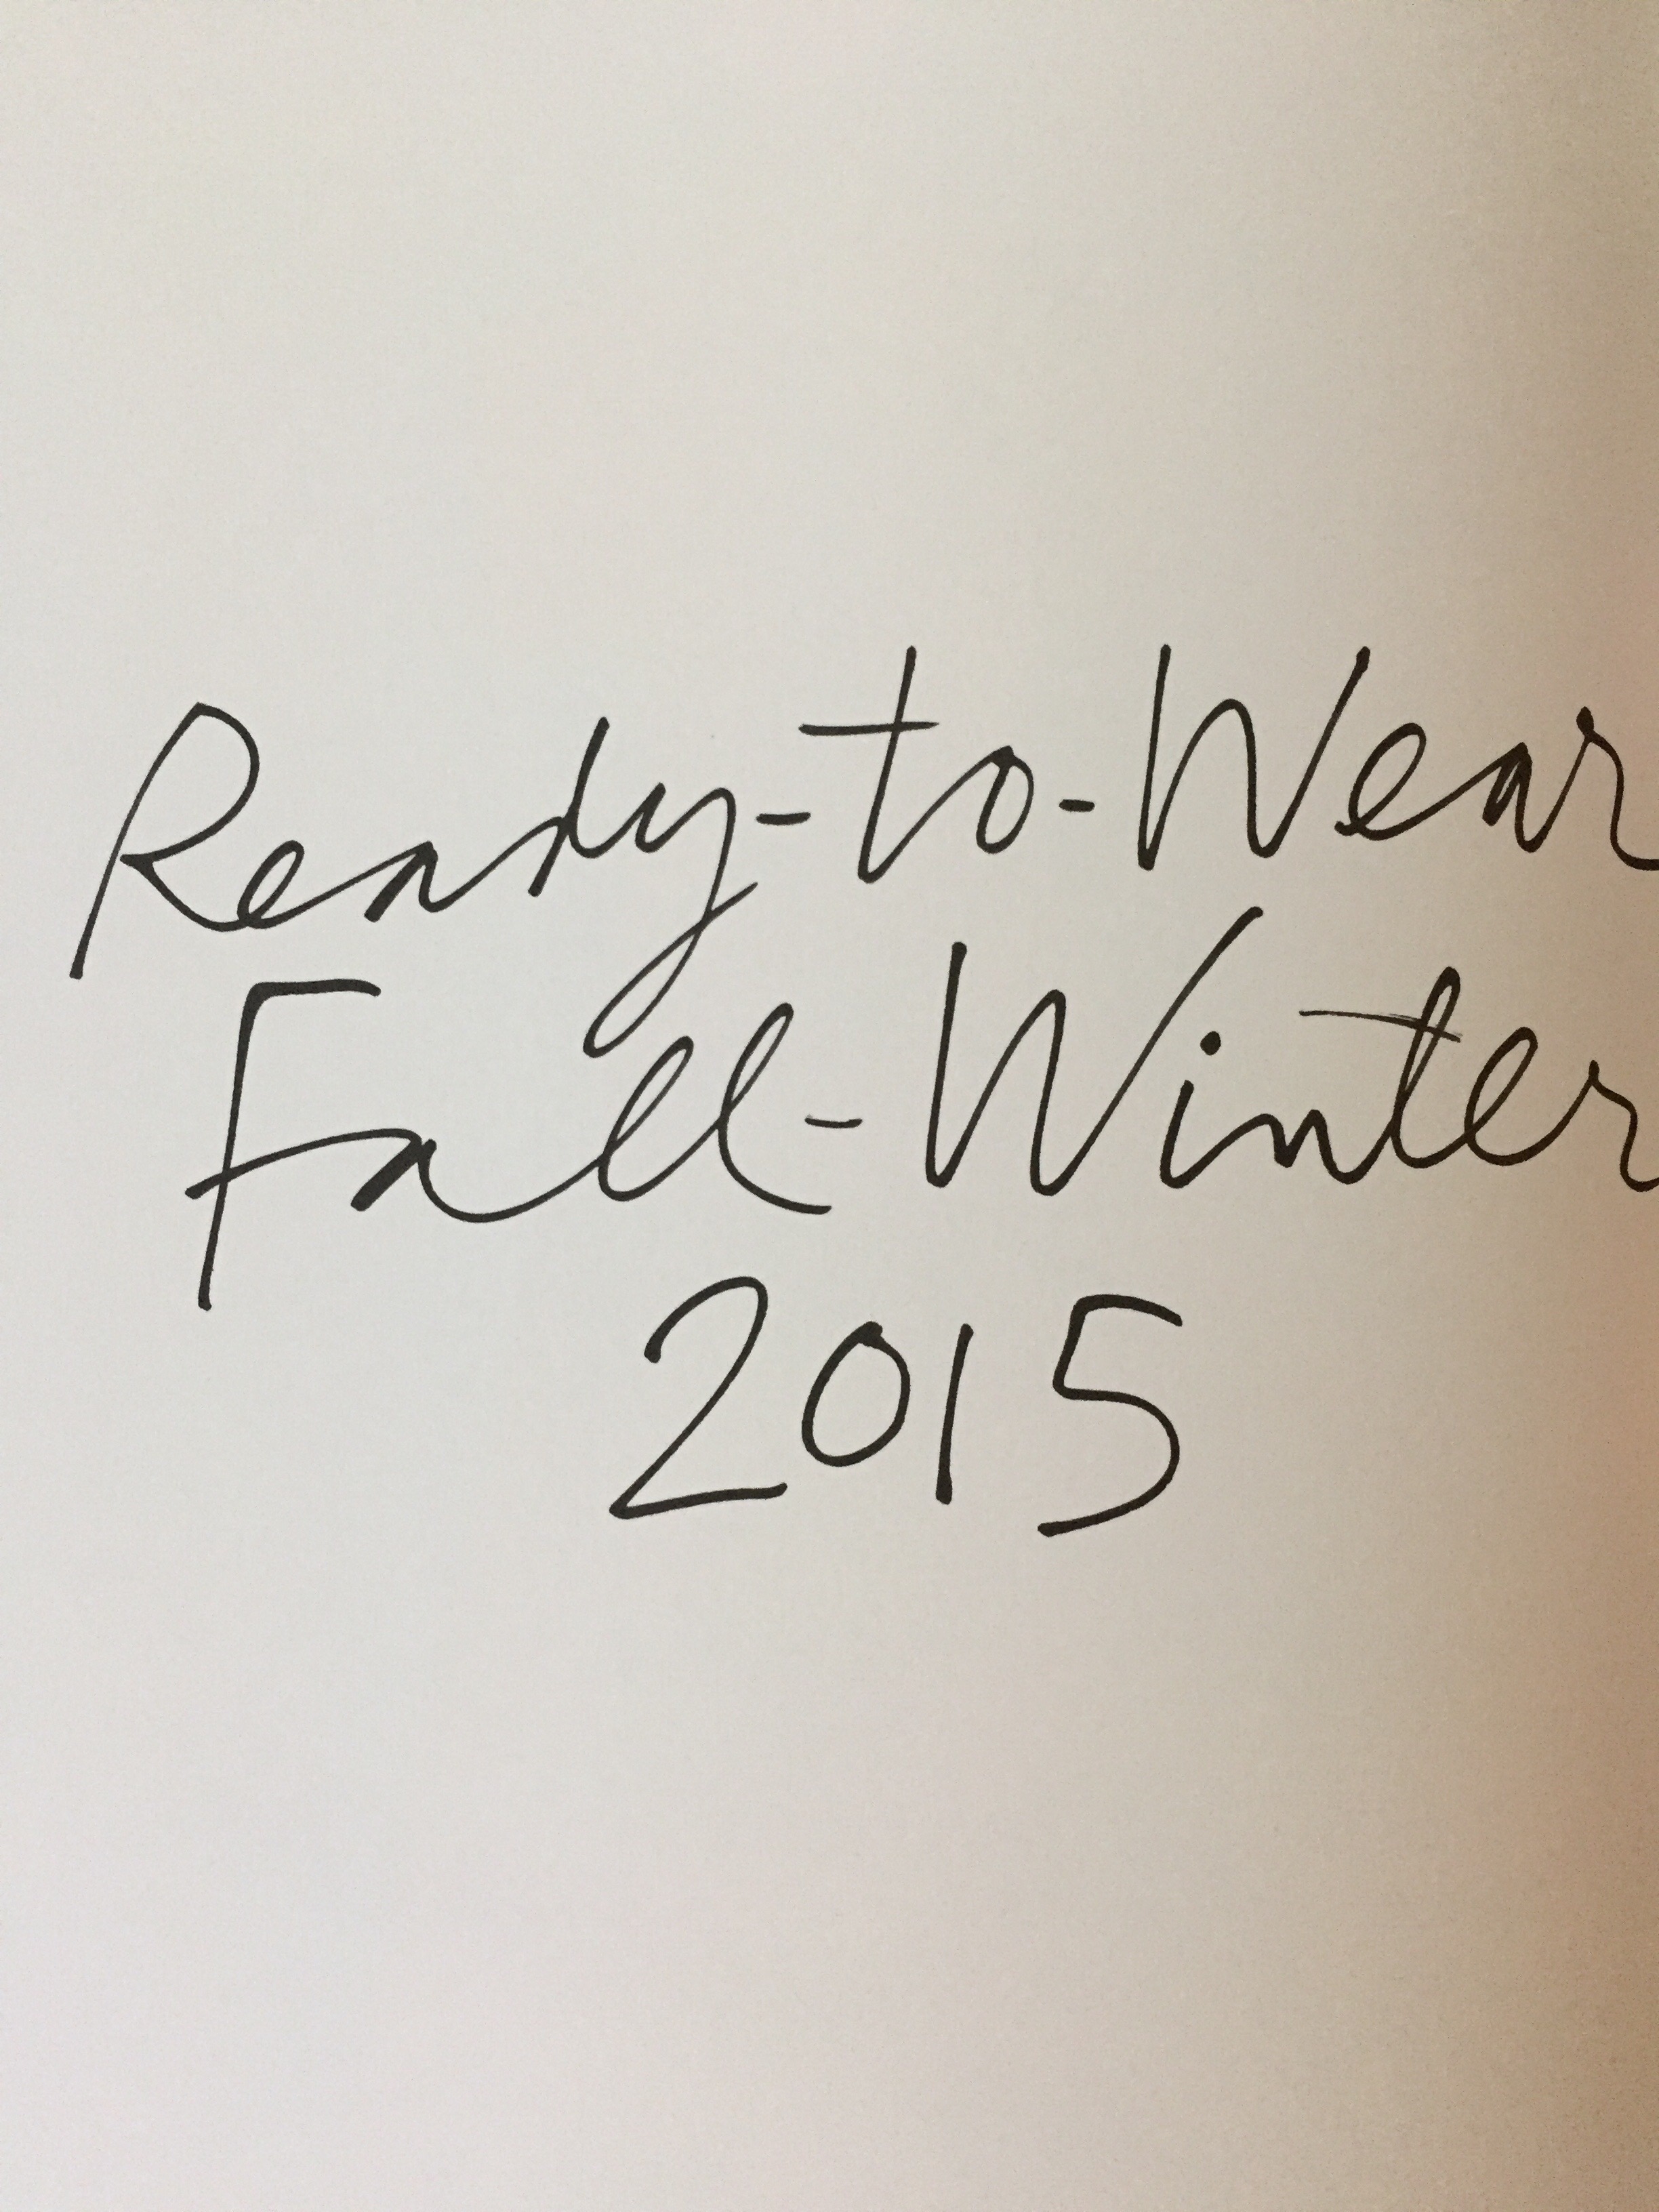 Ready-to-Wear
Fall-Winter
2015